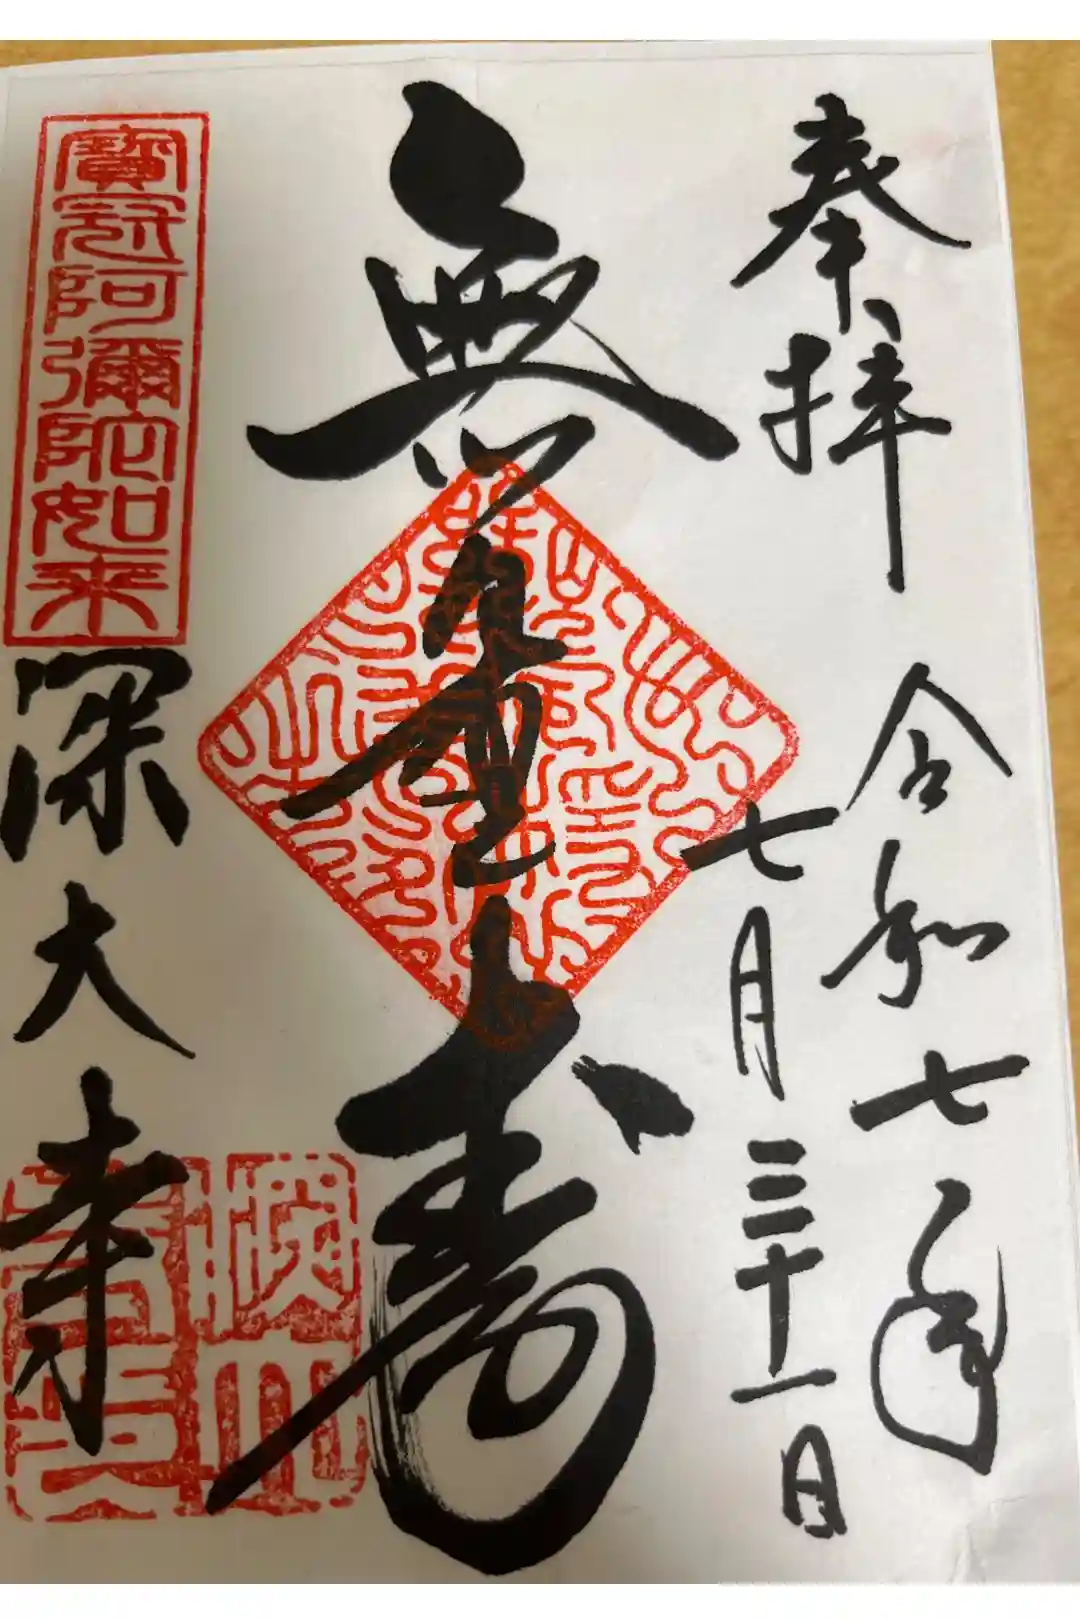 奉拝
令和七年
七月三十一日
無量寿
寶冠阿彌陀如来
深大寺